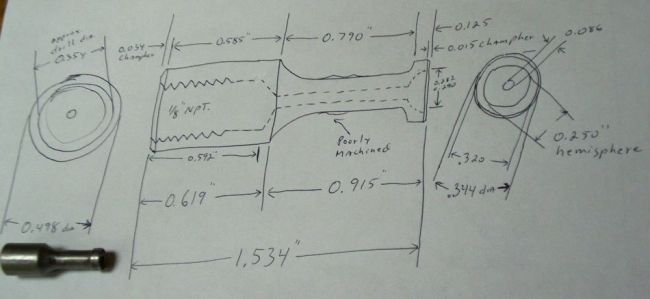 approx
drill dia.
0.354
0.034
champher
0.585"
0.790"
0.125
0.015 champher
0.086
0.282
0.290
1/8" NPT.
Poorly
Machined
0.592"
0.250"
hemisphere
.320
.344 dia
0.619"
0.915"
0.498 dia
1.534"